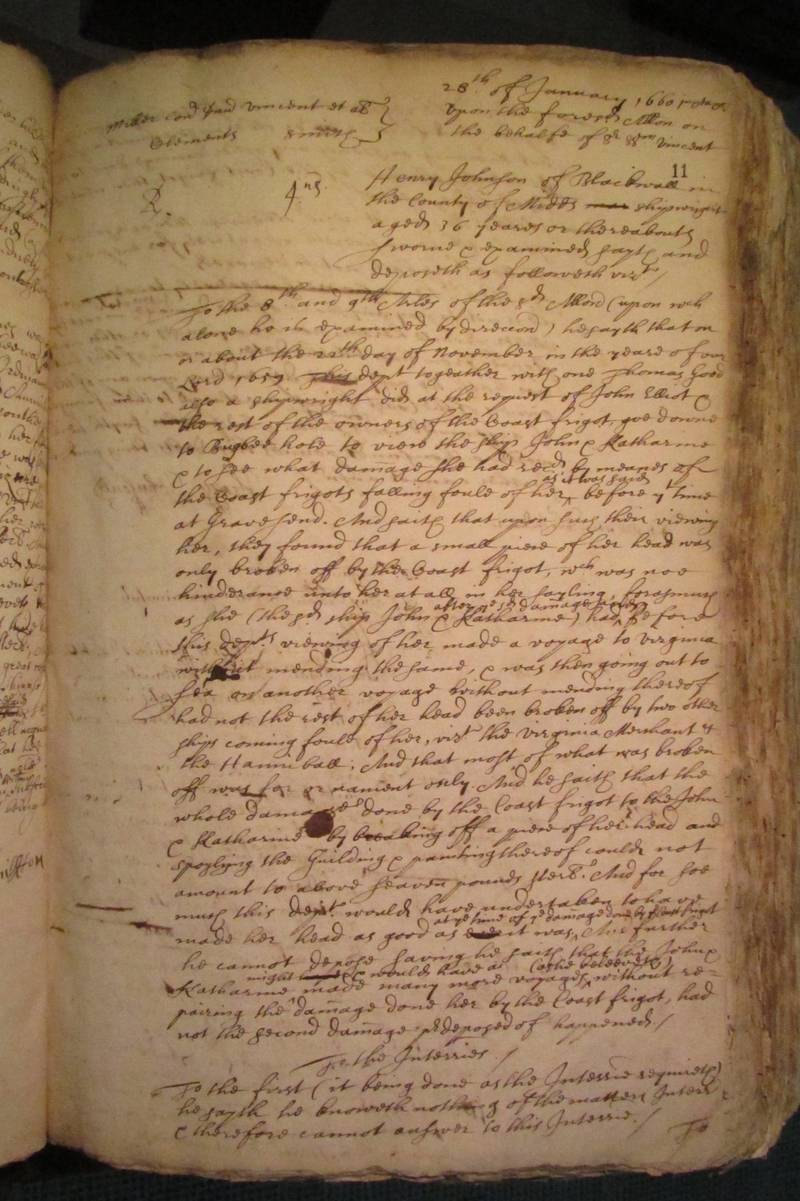 28th of January 1660
Miller con and Vincent et al
upon the foresd Allon on
Clements Smith
the behalfe of sd Vincent
11
R.
4us
Henry Johnson of Blackwall in
the County of Midds shipwright
aged 36 yeares or thereabouts
sworne & examined sayth and
deposeth as followeth vizt /
To the 8th and 9th Arles of the sd Allon (upon wch
alone he is examined by direccon) he sayth that on
or about the day of November in the yeare of our
Lord 1659 This dept together with one Thomas Good
also a shipwright did at the request of John Elliot &
the rest of the owners of the Coast frigot, goe downe
to Bugbee hole to view the ship John & Katharine
& to see what damage she had recd by meanes of
as it was said
the Coast frigots falling foule of her, before yt time
at Gravesend. And saith that upon such their viewing
her, they found that a small piece of her head was
only broken off by the Coast frigot, wch was noe
hinderance unto her at all in her sayling, forasmuch
after ye sd damage
as she (the sd ship John & Katharine) had, before
this depts viewing of her made a voyage to Virginia
without mending the same, & was then going out to
sea on another voyage without mending thereof
had not the rest of her head been broken off by two other
ships coming foule of her, vizt the Virginia Merchant &
the Hanniball, And that most of what was broken
off was for ornament only And he saith that the
whole damage done by the Coast frigot to the John
& Katharine by breaking off a piece of her head and
spoyling the Guilding & painting thereof could not
amount to above seaven pounds sterl. And for soe
much this dept. would have undertaken to have
at ye time of ye damage done by ye Coast frigot
made her head as good as it was, And further
he cannot depose saving he saith that the John &
might & would have as (as he beleeveth)
Katharine made many more voyages without re=
pairing the damage done her by the Coast frigot, had
not the second damage pdeposed of happened /
To the Interries. /
To the first (it being done as the Interrie requireth)
he sayth he knoweth nothing of the matter Interr
& therefore cannot answer to this Interrie. /
To